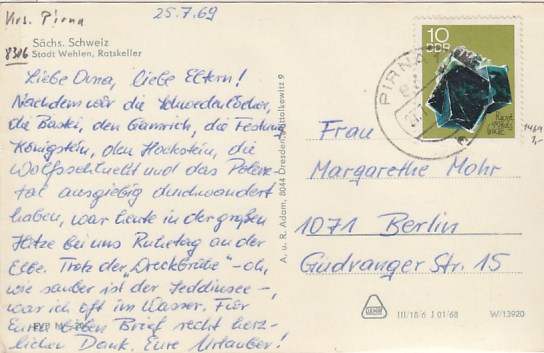 Krs. Pirna
25.7.69
8306
Sächs. Schweiz
Stadt Wehlen, Ratskeller
Liebe Oma, liebe Eltern!
Nachdem wir die Schwedenlöcher,
die Bastei, den Gamrich, die Festung
Königstein, den Hockstein, die
Wolfsschlucht und das Polenz-
tal ausgiebig durchwandert
haben, war heute in der großen
Hitze bei uns Ruhetag an der
Elbe. Trotz der „Dreckbrühe" - oh,
wie sauber ist der Seddinsee -,
war ich oft im Wasser. Für
Euren lieben Brief recht herz-
lichen Dank. Eure Urlauber!
A. u. R. Adam, 8044 Dresden, 9
10
DDR
PIRNA
Frau
Margarethe Mohr
1071 Berlin
Gudvanger Str. 15
III/18/6 J 01/68
W/13920